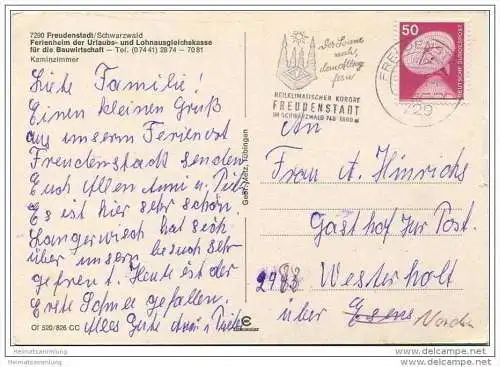 7290 Freudenstadt/Schwarzwald
Ferienheim der Urlaubs- und Lohnausgleichskasse
für die Bauwirtschaft — Tel. (07441) 2874 — 7081
Kaminzimmer
Liebe Familie!
Einen kleinen Gruß
aus unserm Ferienort
Freudenstadt senden
Euch Allen Anni u.
Es ist hier sehr schön.
Langerwisch hat sich
über unsern besuch sehr
gefreut. Heute ist der
Erste Schnee gefallen.
Alles Gute Anni u
Of 520/826 CC
Gebr. Metz, Tübingen
Der Sonne
nah,
dem Alltag
fern
HEILKLIMATISCHER KURORT
FREUDENSTADT
IM SCHWARZWALD 740-1000 m
FREUDENSTADT
729
50
DEUTSCHE BUNDESPOST
An
Frau A. Hinrichs
Gasthof Zur Post.
2983 Westerholt
über Esens Norden
Heimatsammlung.de